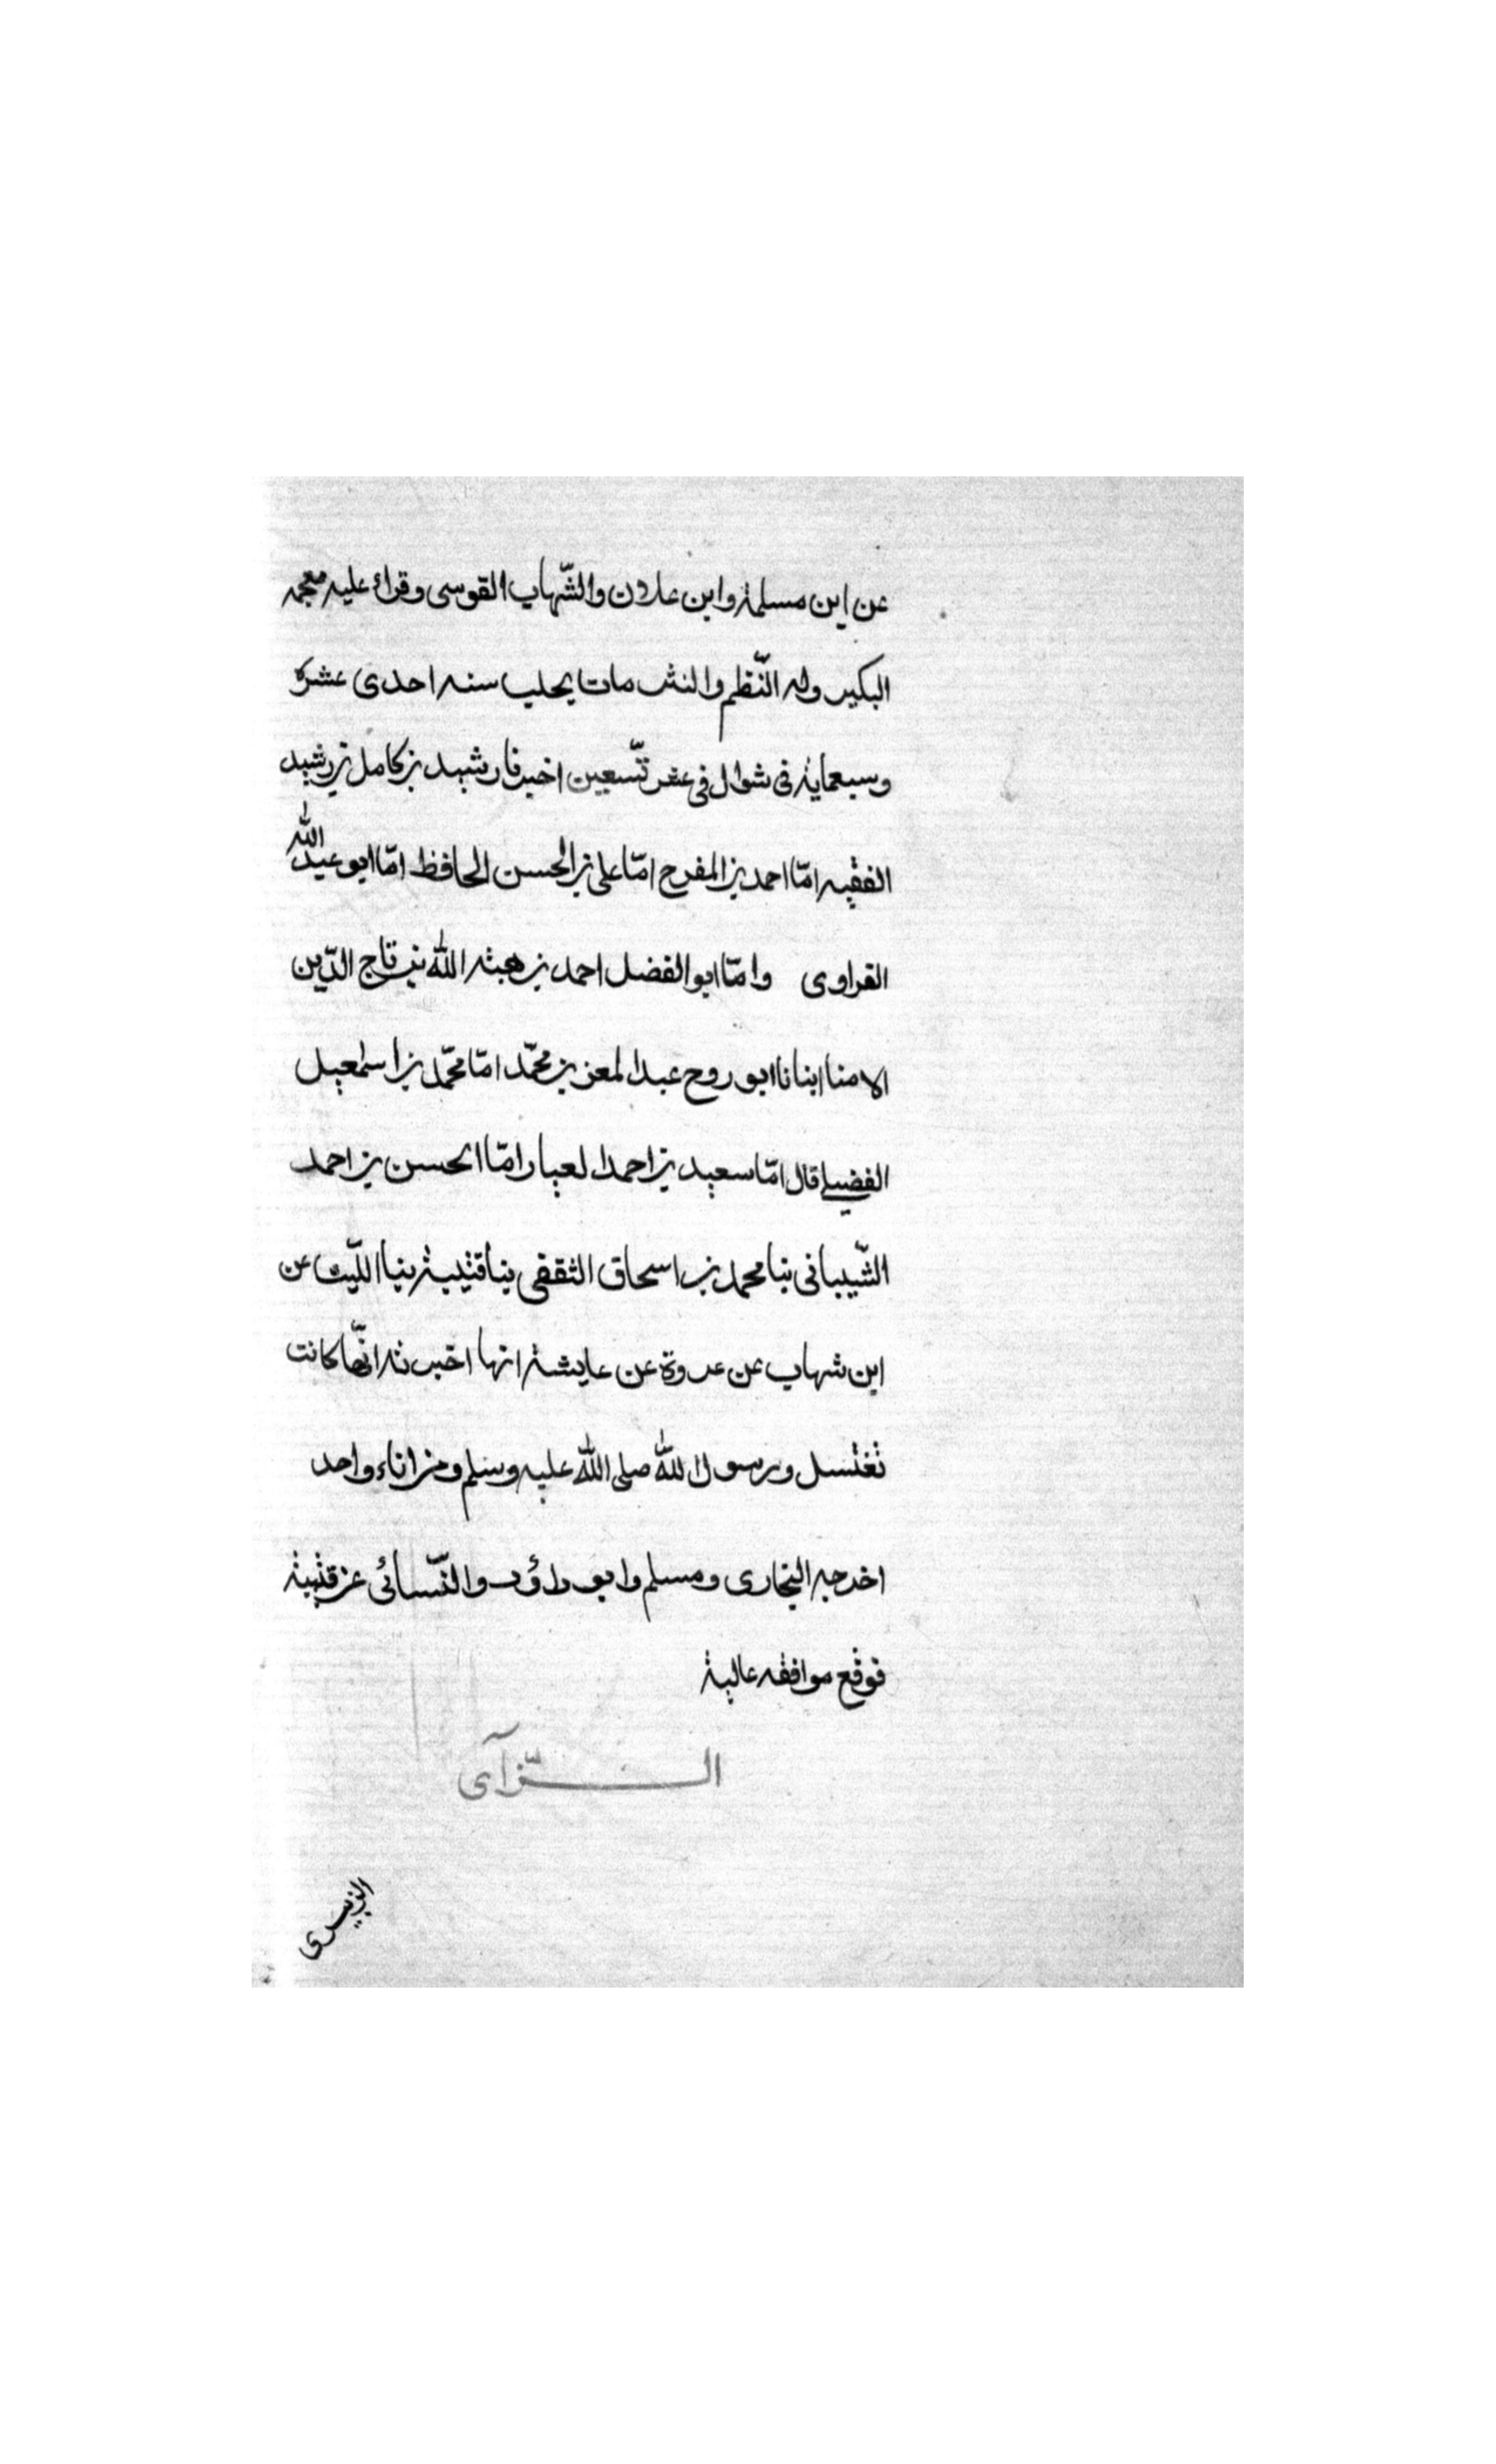 عن ابن مسلمة وابن علان والشّهاب القوسى وقراء عليه معجمه
البكير وله النّظم والنثر مات بحلب سنه احدى عشرة
وسبعماية فى شوال فى عشر تسّعين اخبرنا رشيد بن كامل بن رشيد
الفقيه امّا احمد بن المفرح امّا على بن الحسن الحافظ امّا ابو عبد الله
القراوى وامّا ابو الفضل احمد بن هبة الله بن تاج الدّين
الامنا ابنانا ابو روح عبد المعز بن محمّد امّا محمّد بن اسمعيل
الفضيلے قال امّا سعيد بن احمد العيار امّا الحسن بن احمد
الشّيبانى نبا محمد بن اسحاق الثقفى ينا قتيبة بنا اللّيث عن
ابن شهاب عن عروة عن عايشة انها اخبرته انّها كانت
تغتسل ورسول الله صلى الله عليه وسلم ومن اناء واحد
اخرجه البخارى ومسلم وابو داؤد والنّسائى عن قتيبة
فوقع موافقه عالية